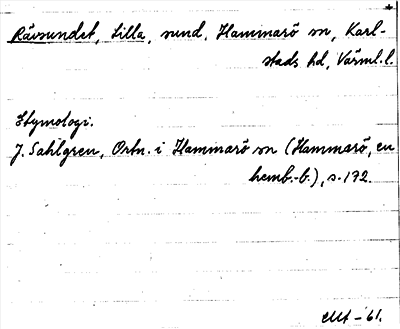 Rävsundet, Lilla, sund, Hammarö sn, Karl-
stads hd, Värml.l.
Etymologi.
J. Sahlgren, Ortn. i Hammarö sn (Hammarö, en
hemb.-b.), s. 192.
-61.